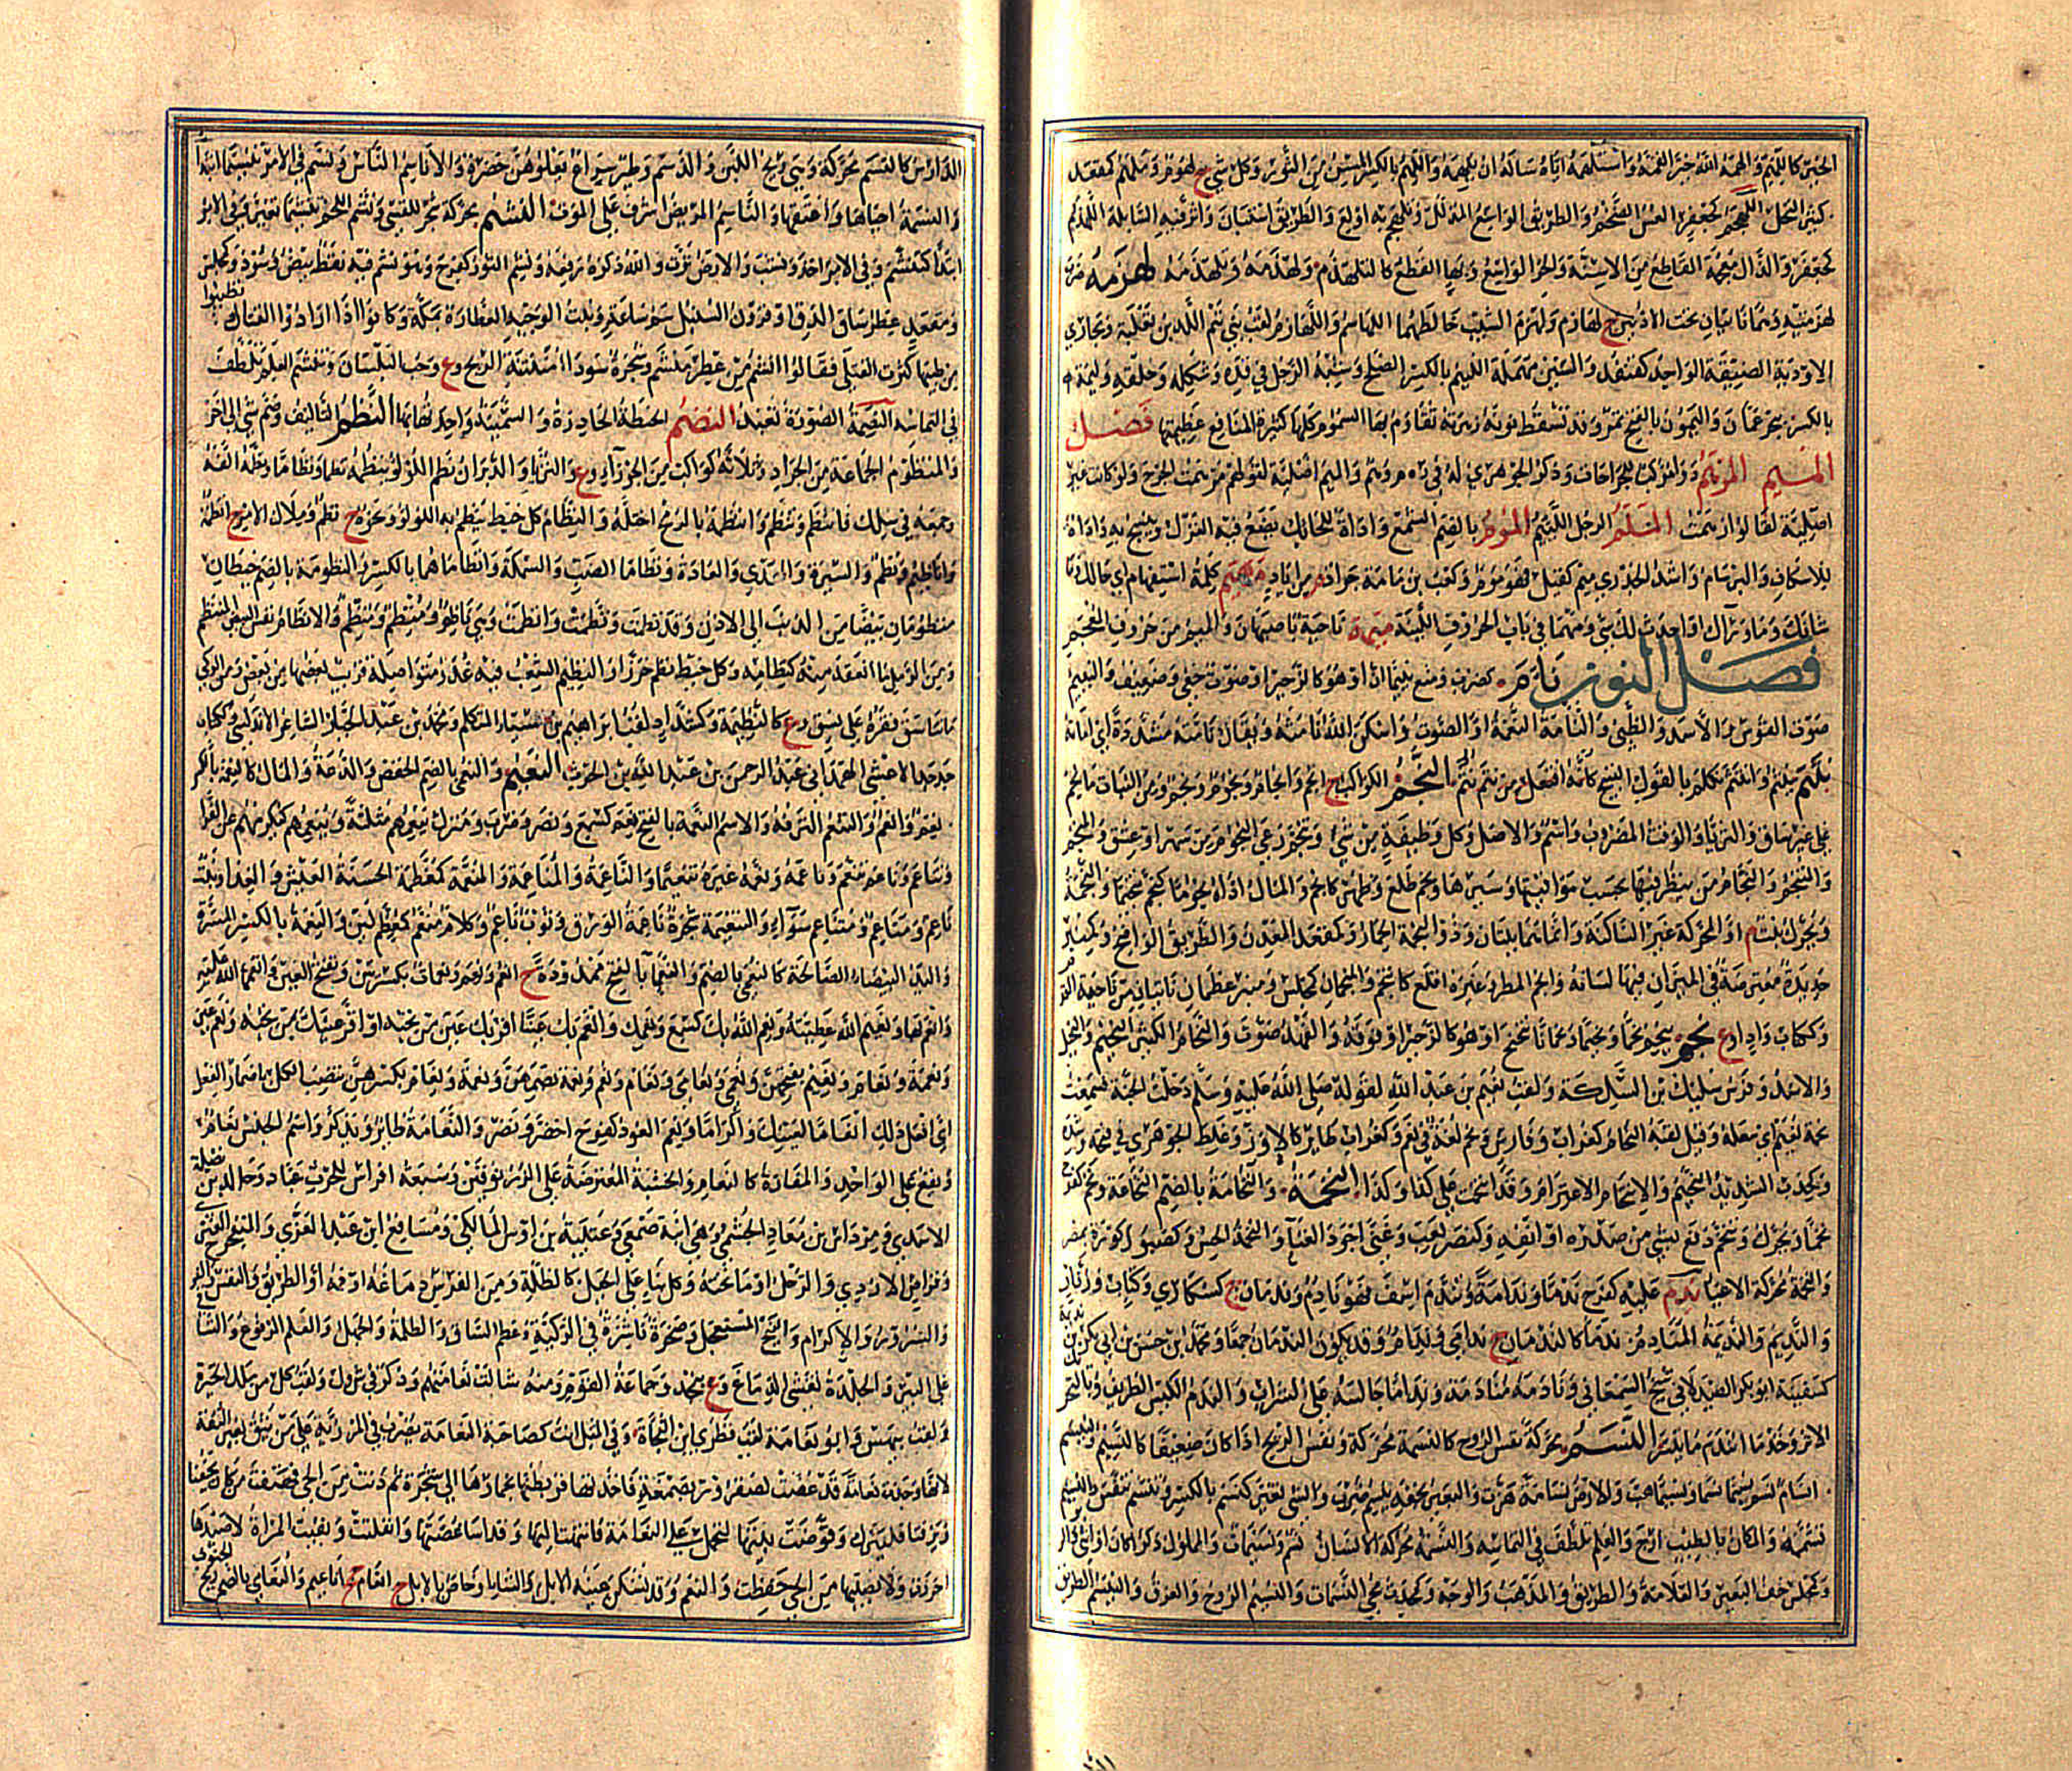 الخير كاللهيم والهمه الله خيرا لقنه واستلهمه اياه ساله ان يلهمه واللهم بالكسر المسن من الثور وكل شيء ج لهوم وملهم كمقعد
كثير النخل اللهجم كجعفر العس الضخم والطريق الواسع المذلل وتلهجم به اولع والطريق استبان واثر فيه السابلة اللهذم
كجعفر والذال معجمة القاطع من الاسنة والحر الواسع وبهاء القطع كالتلهذم ولهذمه وتلهذمه لهزمه ضرب
لهزمتيه وهما ناتيان تحت الاذنين ج لهازم ولهزم الشيب خالطهما اللهاسم واللهازم لقب بني تيم اللات بن ثعلبة ومجاري
الاودية الضيقة الواحد كقنفذ والسين مهملة الليم بالكسر الصلح وشبه الرجل في قده وشكله وخلقه وليمة
بالكسر بعمان والليمون بالفتح ثمر وقد تسقط نونه فصل
الميم المرهم دواء مركب للجراحات وذكر الجوهري له في ر ه م وهم والميم اصلية لقولهم مرهمت الجرح ولو كانت غير
اصلية لقالوا ارهمت الملم الرجل اللئيم الموم بالضم الشمع واداة للحائك يضع فيه الغزل وينسج به واداة
للاسكاف والبرسام واشد الجدري ميم كقيل فهو موم وكعب بن مامة جواد م من اياد مهيم كلمة استفهام اي ما حالك وما
شانك وما وراءك او احدث لك شيء ومهما في باب الحروف اللينة ميمة ناحية باصبهان والميم من حروف المعجم
فصل النون نام كضرب ومنع نئيما ان او هو كالزحير او صوت خفي وضعيف والنئيم
صوت القوس والاسد والظبي والنامة النغمة او الصوت واسكن الله نامته ويقال نامته مشددة اي اماته
نثم ينثم وانتثم تكلم بالقول القبيح كانه افتعل من نثم النجم الكوكب ج انجم وانجام ونجوم ونجم ومن النبات ما نجم
على غير ساق والثريا والوقت المضروب واسم والاصل وكل وظيفة من شيء وتنجم رعى النجوم من سهر او عشق والمنجم
والمتنجم والنجام من ينظر فيها بحسب مواقيتها وسيرها ونجم طلع وظهر كانجم والمال اداه نجوما كنجم تنجيما والنجمة
ويحرك نبت م او المحركة غير الساكنة وانهما نبتان وذو النجمة الحمار وكمقعد المعدن والطريق الواضح وكمنبر
حديدة معترضة في الميزان فيها لسانه وانجم المطر وغيره اقلع كانتجم والمنجمان كمجلس ومنبر عظمان ناتيان من ناحية القدم
وككتاب واد او ع نحم ينحم نحما ونحيما ونحمانا تنحنح او هو كالزحير او فوقه والفهد صوت والنحام الكثير النحيم والبخيل
والاسد وفرس سليك بن السلكة ولقب نعيم بن عبد الله لقوله صلى الله عليه وسلم دخلت الجنة فسمعت
نحمة نعيم اي سعلة وقيل لقبه النحام كغراب وفارس ونحم لغة في نعم وكغراب طائر كالاوز وغلط الجوهري في فتحه وشده
وكخدب الشديد النحيم والانتحام الاعتزام وقد انتحمت على كذا وكذا النخمة والنخامة بالضم النخاعة ونخم كفرح
نخما ويحرك وتنخم دفع بشيء من صدره او انفه وكنصر لعب وغنى اجود الغناء والنخمة الحس وكصبور كورة بمصر
والنخمة محركة الاعياء ندم عليه كفرح ندما وندامة وتندم اسف فهو نادم وندمان ج كسكارى وكتاب وزنار
والنديم والنديمة المنادم من ندماء كالندمان ج ندامى وندام وقد يكون الندمان جمعا ومحمد بن حسن بن ابي بكر بن ندمة
كسفينة ابو بكر الصيدلاني شيخ السمعاني ونادمه منادمة ونداما جالسه على الشراب والندم الكيس الظريف وبالتحريك
الاثر وخذ ما انتدم ما تيسر النسم محركة نفس الروح كالنسمة محركة ونفس الريح اذا كان ضعيفا كالنسيم والنيسم
انسام نسم ينسم نسما ونسيما هب والارض نسامة نزت والبعير بخفه ينسم ضرب والشيء تغير كنسم بالكسر وتنسم تنفس والنسيم
تشممه والمكان بالطيب ارج والعلم تلطف في التماسه والنسمة محركة الانسان نسم ونسمات والمملوك ذكرا كان او انثى والربو
وكمجلس خف البعير والعلامة والطريق والمذهب والوجه وكمحدث محيي النسمات والنسيم الروح والعرق والنيسم الطريق
الدارس كالنسم محركة ونسي وريح اللبن والدسم وطير سراع يعلوهن خضرة والاناسم الناس ونسم في الامر تنسيما ابتدا
والنسمة احياها واعتقها والناسم المريض اشرف على الموت النشم محركة شجر للقسي ونشم اللحم تنشيما تغير وفي الامر
ابتدا كتنشم وفي الامر اخذ ونشب والارض نزت والله ذكره رفعه ونشم الثور كفرح وهو نشم فيه نقط بيض وسود وكمجلس
ومقعد عطر شاق الدق او قرون السنبل سم ساعة وبنت الوجيه العطارة بمكة وكانوا اذا ارادوا القتال وتطيبوا
من طيبها كثرت القتلى فقالوا اشأم من عطر منشم وثمرة سوداء منتنة الريح وع وحب البلسان وتنشم العلم تلطف
في التماسه النصمة الصورة تعبد النضم الحنطة الحادرة والسمينة واحدتها بهاء النظم التاليف وضم شيء الى اخر
والمنظوم الجماعة من الجراد وثلاثة كواكب من الجوزاء وع والثريا والدبران نظم اللؤلؤ ينظمه نظما ونظاما ونظمه الفه
وجمعه في سلك فانتظم وتنظم وانتظمه بالرمح اختله والنظام كل خيط ينظم به اللؤلؤ ونحوه ج نظم وملاك الامر ج انظمة
واناظيم ونظم والسيرة والهدي والعادة ونظاما الضب والسمكة وانظاماهما بالكسر والنظومة بالضم خيطان
منظومان بيضا من الذنب الى الاذن وقد نظمت ونظمت وانظمت وهي ناظم ومنظم ومنظم والانظام نفس البيض المنتظم
ومن الرمل ما تعقد منه كنظامه وكل خيط نظم خرزا والنظيم الشعب فيه غدر متواصلة قريب بعضها من بعض ومن الركي
ما تناسق فقره على نسق وع كالنظيمة وكشداد لقب ابراهيم بن سيار المتكلم ومحمد بن عبد الجبار الشاعر الاندلسي وككتاب
جد جد الاعشى الهمداني عبد الرحمن بن عبد الله بن الحرث النعيم والنعمى بالضم الخفض والدعة والمال كالنعمة بالكسر
نعم وانعم والتنعم الترفه والاسم النعمة بالفتح نعم كسمع ونصر وضرب ومنزل ينعمهم مثلثة وينعمهم كيكرمهم عن الفراء
وتناعم وناعم وتنعم وناعمه ونعمه غيره تنعيما والناعمة والمناعمة والمنعمة كمعظمة الحسنة العيش والغذاء ونبت
ناعم ومناعم ومتناعم سواء والتنعيمة شجرة ناعمة الورق وثوب ناعم وكلام منعم كمعظم لين والنعمة بالكسر المسرة
واليد البيضاء الصالحة كالنعمى بالضم والنعماء بالفتح ممدودة ج انعم ونعم ونعمات بكسرتين وتفتح العين وانعمها الله عليه
وانعم بها ونعيم الله عطيته ونعم الله بك كسمع ونعمك وانعم بك عينا اقر بك عين من تحبه او اقر عينك بمن تحبه ونعم عين
ونعمة ونعام ونعيم بفتحهن ونعمى ونعامى ونعام ونعم ونعمة بضمهن ونعمة ونعام بكسرهن وينصب الكل باضمار الفعل
اي افعل ذلك انعاما لعينك واكراما ونعم العود كفرح اخضر ونضر والنعامة طائر ويذكر واسم الجنس نعام
ويقع على الواحد والمفازة كالنعام والخشبة المعترضة على الزرنوقين وسبعة افراس للحرث بن عباد وخالد بن نضلة
الاسدي ومرداس بن معاذ الجشمي وهي ابنة صمعر وعيينة بن اوس المالكي ومسافع بن عبد العزى والمنبجر الغبري
وقراض الازدي والرحل او ما تحته وكل بناء على الجبل كالظلة ومن الفرس دماغه او فمه او الطريق والنفس والفرح
والسرور والاكرام والفيج المستعجل وصخرة ناشزة في الركية وعظم الساق والظلمة والجهل والعلم المرفوع والساقي
على البئر والجلدة تغشى الدماغ وع بنجد وجماعة القوم ومنه شالت نعامتهم وذكر في ش و ل ولقب كل من ملك الحيرة
ولقب بيهس وابو نعامة لقب قطري بن الفجاءة وفي المثل انت كصاحبة النعامة يضرب في المرزئة على من يثق بغير الثقة
لانها وجدت نعامة قد غصت بصعرور بصمغة فاخذتها فربطتها بخمارها الى شجرة ثم دنت من الحي فهتفت من كان يحفنا
ويرفنا فليترك وقوضت بيتها لتحمل على النعامة فانتهت اليها وقد اساغت غصتها وافلتت وبقيت المراة لا صيدها
احرزت ولا نصيبها من الحي حفظت والنعم وقد تسكن عينه الابل والشاء او خاص بالابل ج انعام جج اناعيم والنعامى بالضم ريح الجنوب